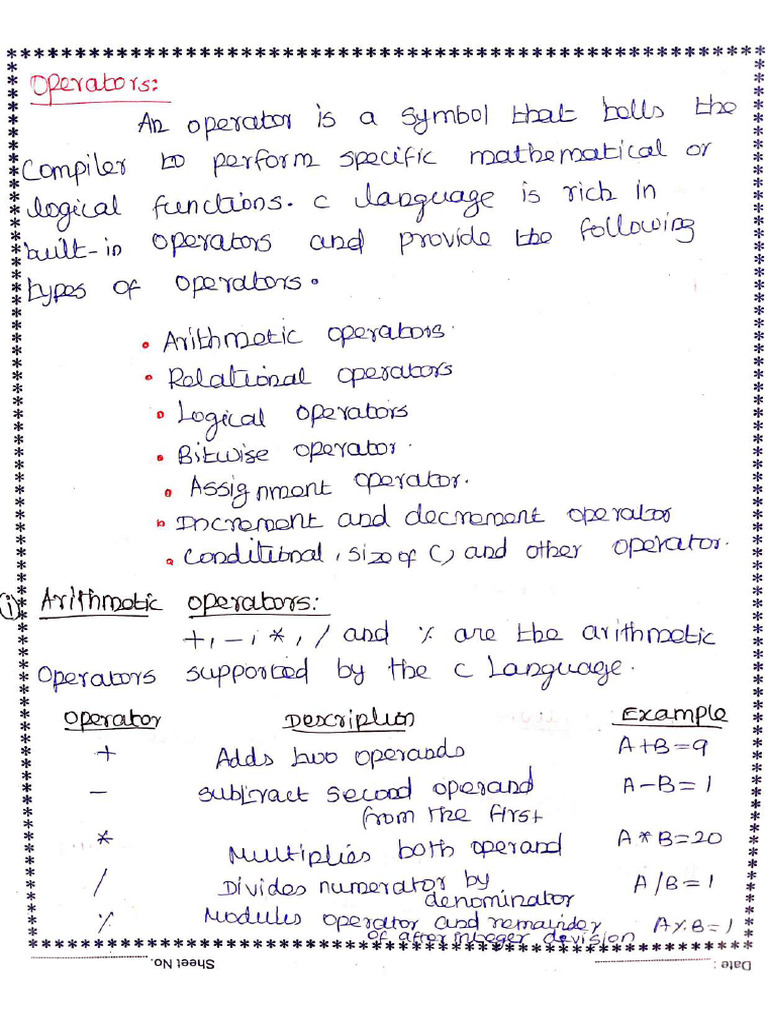 Operators:
An operator is a symbol that tells the
compiler to perform specific mathematical or
logical functions. C language is rich in
built-in operators and provide the following
types of operators.
• Arithmetic operators.
• Relational operators
• Logical operators
• Bitwise operator.
• Assignment operator.
• Increment and decrement operator
• Conditional, size of (, and other operator.
(i) Arithmetic operators:
+, -, *, / and % are the arithmetic
operators supported by the C Language.
Operator Description Example
+ Adds two operands A+B=9
- subtract second operand from the first A-B=1
* Multiplies both operand A*B=20
/ Divides numerator by denominator A/B=1
% Modules operator and remainder of after integer devision A%B=1
Sheet No. Date :